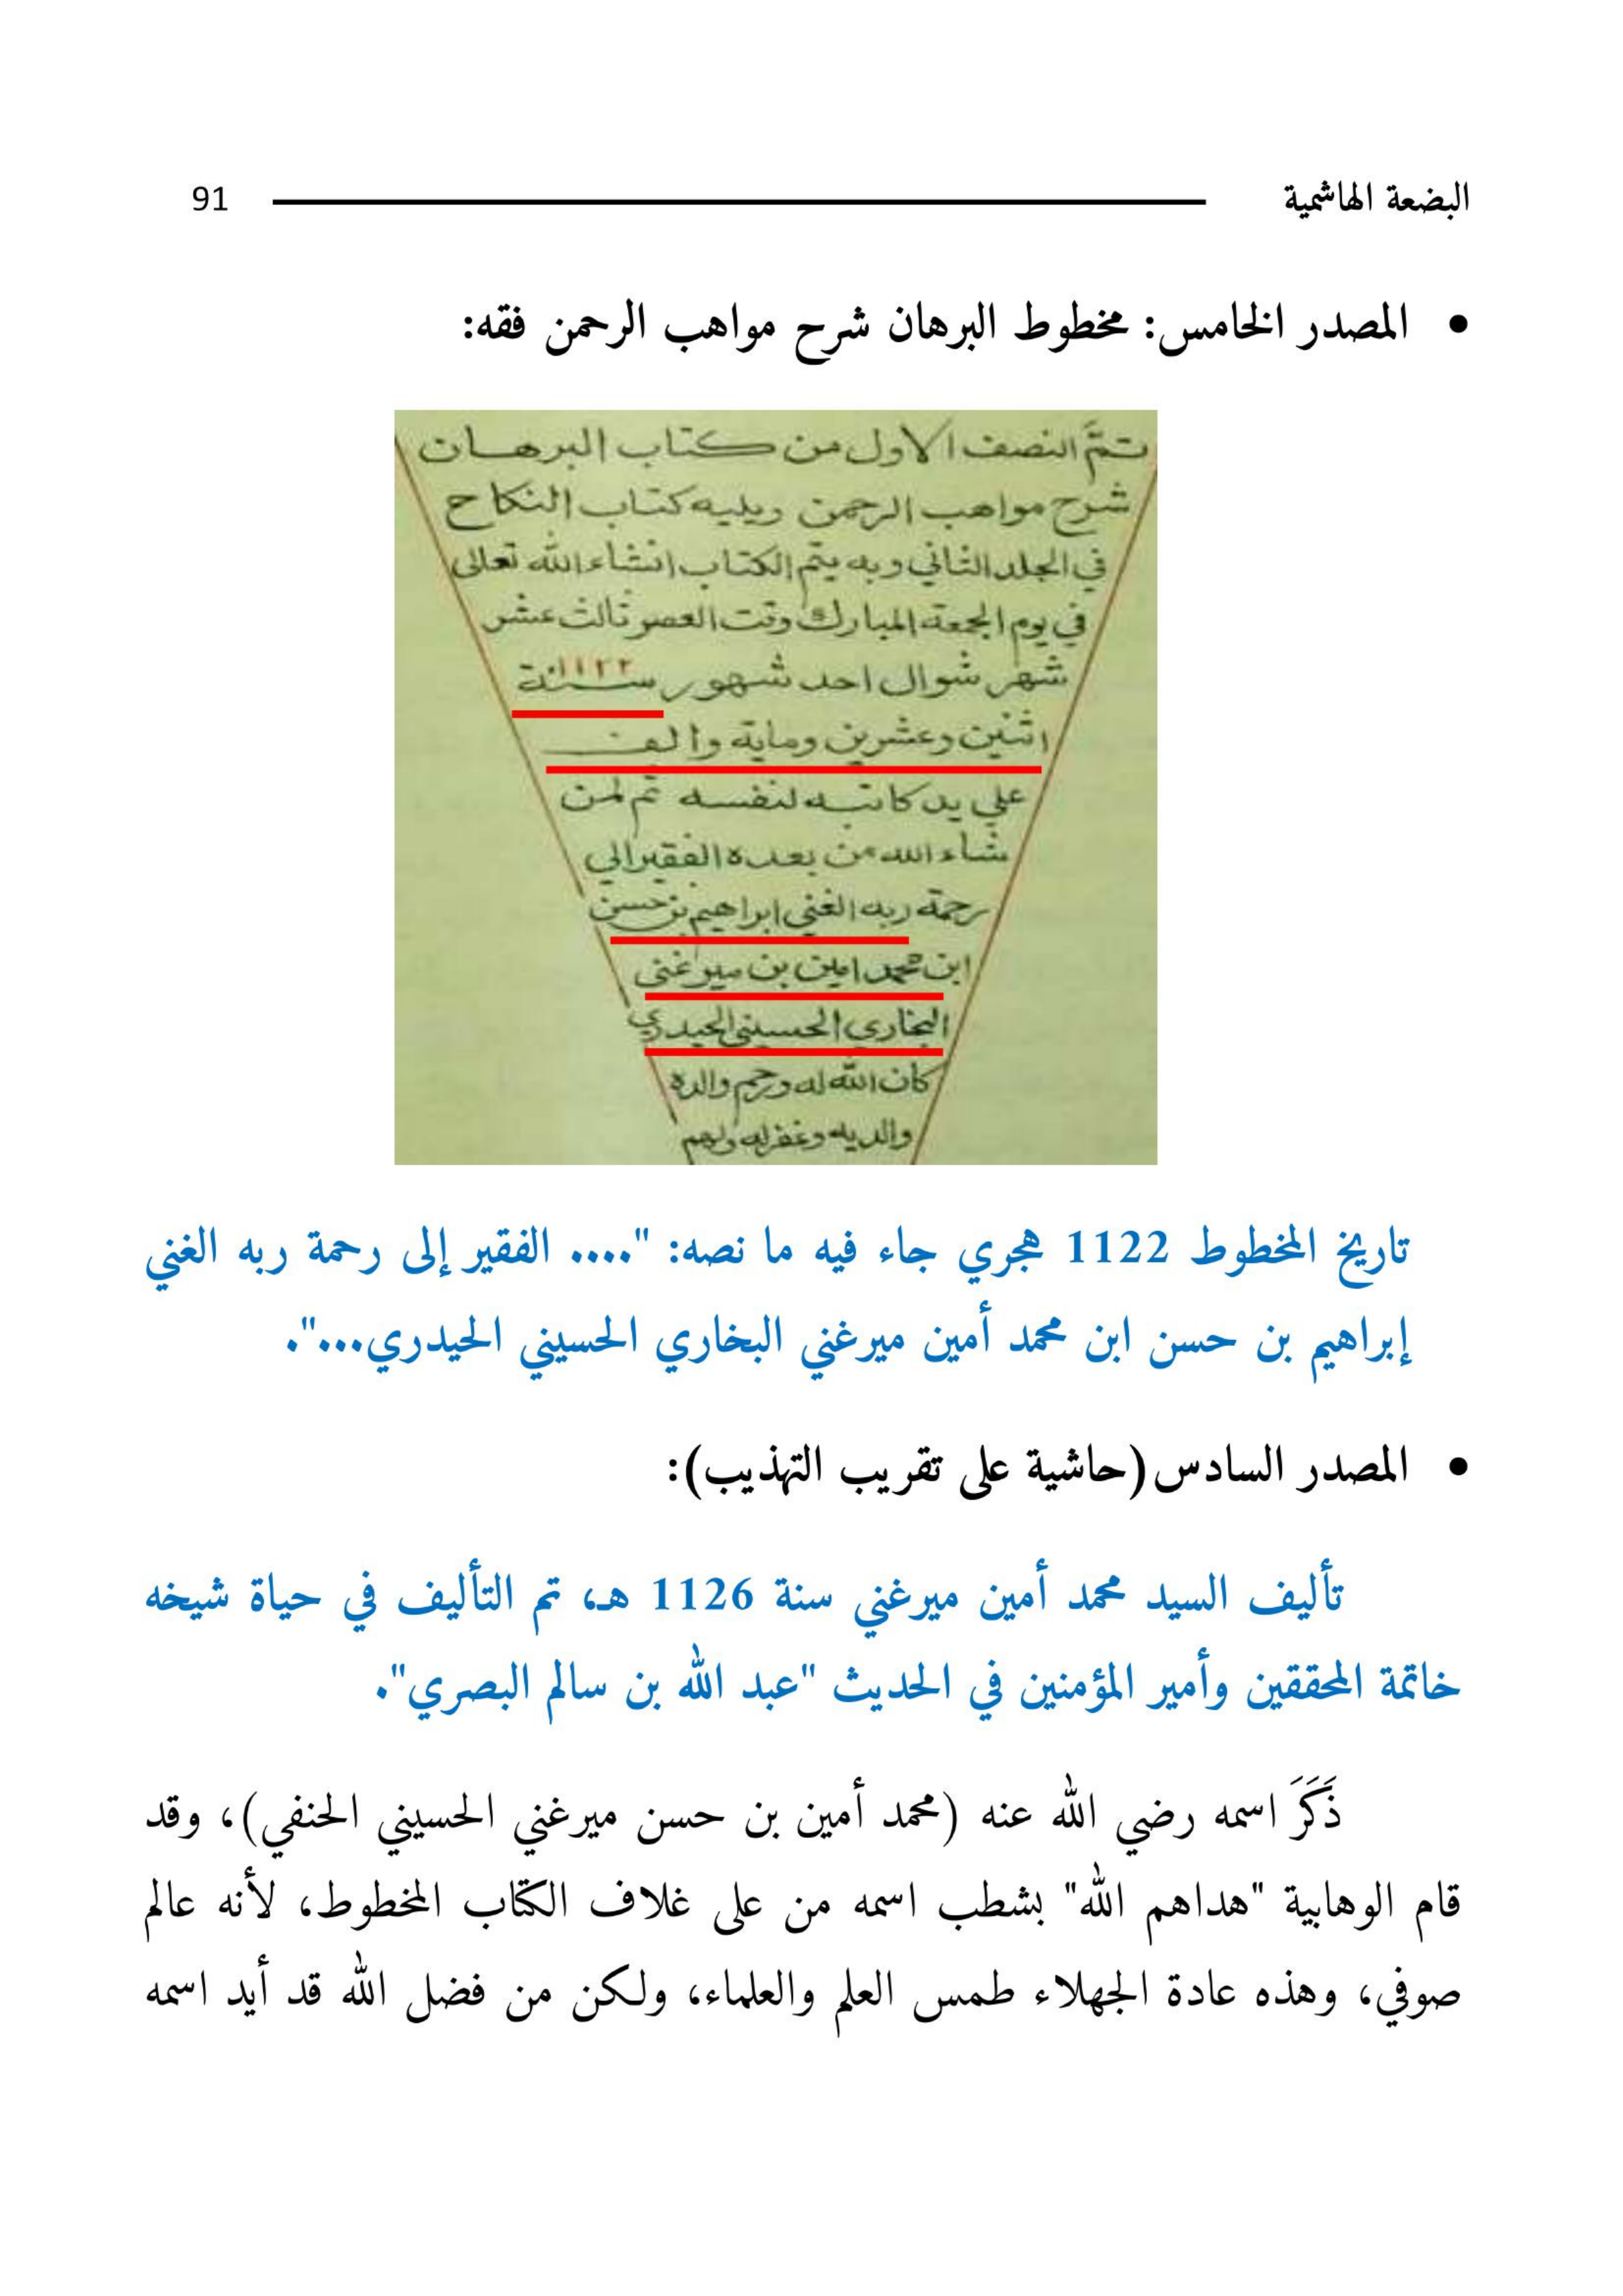 البضعة الهاشمية 91
• المصدر الخامس: مخطوط البرهان شرح مواهب الرحمن فقه:
تمَّ النصف الاول من كتاب البرهان
شرح مواهب الرحمن ويليه كتاب النكاح
في الجلد الثاني وبه يتم الكتاب انشاء الله تعالى
في يوم الجمعة المبارك وقت العصر ثالث عشر
شهر شوال احد شهور سنة ١١٢٢
اثنين وعشرين وماية والف
علي يد كاتبه لنفسه ثم لمن
شاء الله من بعده الفقير الي
رحمة ربه الغني ابراهيم بن حسن
ابن محمد امين بن ميرغني
البخاري الحسيني الحيدري
كان الله له ورحم والده
والديه وغفر له ولهم
تاريخ المخطوط 1122 هجري جاء فيه ما نصه: ".... الفقير إلى رحمة ربه الغني
إبراهيم بن حسن ابن محمد أمين ميرغني البخاري الحسيني الحيدري...".
• المصدر السادس (حاشية على تقريب التهذيب):
تأليف السيد محمد أمين ميرغني سنة 1126 هـ، تم التأليف في حياة شيخه
خاتمة المحققين وأمير المؤمنين في الحديث "عبد الله بن سالم البصري".
ذَكَرَ اسمه رضي الله عنه (محمد أمين بن حسن ميرغني الحسيني الحنفي)، وقد
قام الوهابية "هداهم الله" بشطب اسمه من على غلاف الكتاب المخطوط، لأنه عالم
صوفي، وهذه عادة الجهلاء طمس العلم والعلماء، ولكن من فضل الله قد أيد اسمه